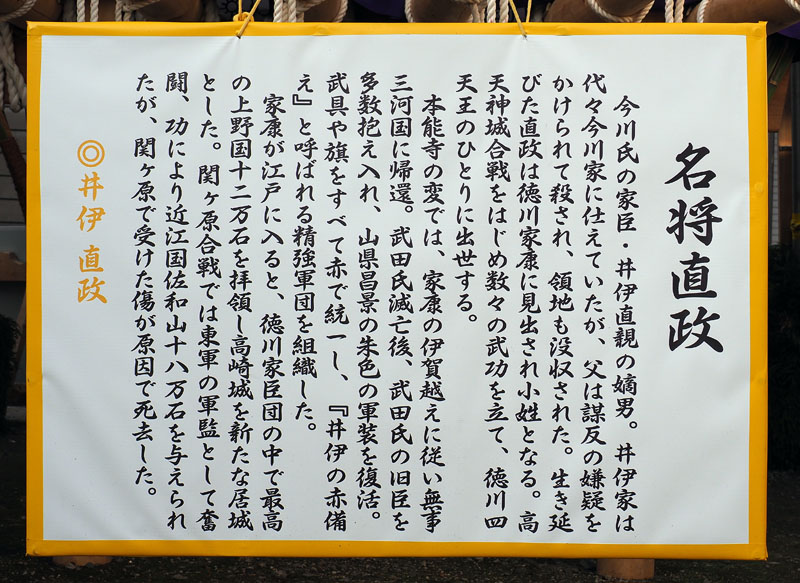 名将直政
今川氏の家臣・井伊直親の嫡男。井伊家は
代々今川家に仕えていたが、父は謀反の嫌疑を
かけられて殺され、領地も没収された。生き延
びた直政は徳川家康に見出され小姓となる。高
天神城合戦をはじめ数々の武功を立て、徳川四
天王のひとりに出世する。
本能寺の変では、家康の伊賀越えに従い無事
三河国に帰還。武田氏滅亡後、武田氏の旧臣を
多数抱え入れ、山県昌景の朱色の軍装を復活。
武具や旗をすべて赤で統一し、『井伊の赤備
え』と呼ばれる精強軍団を組織した。
家康が江戸に入ると、徳川家臣団の中で最高
の上野国十二万石を拝領し高崎城を新たな居城
とした。関ヶ原合戦では東軍の軍監として奮
闘、功により近江国佐和山十八万石を与えられ
たが、関ヶ原で受けた傷が原因で死去した。
◎井伊 直政